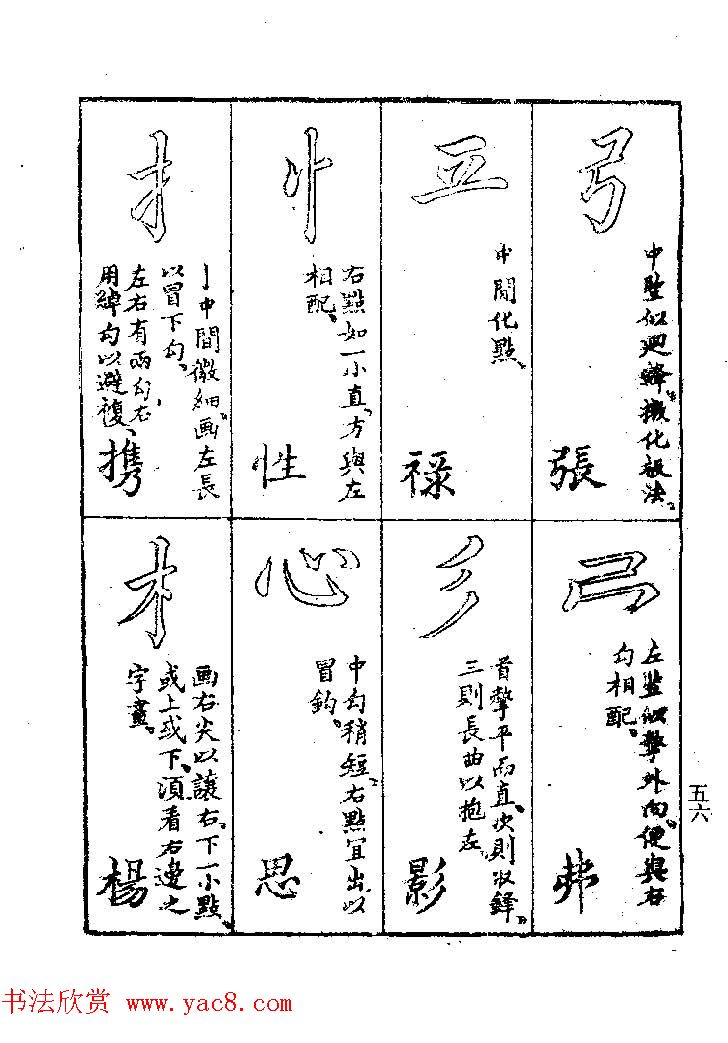 弓
中竪似迴鋒撇化報法、
張
亞
中間化點、
祿
忄
右點如一小直、方與左
相配、
性
扌
亅中間微細、画左長
以冒下勾、
左右有兩勾、右
用綽勾以避複、
携
左監似擎外向、便與右
勾相配、
弗
彡
首擎平而直、次則収鋒、
三則長曲以抱左、
影
心
中勾稍短、右點宜出、以
冒鈎、
思
木
画右尖以讓右、下一小點、
或上或下、湏看右邊之
字畫、
楊
五六
书法欣赏 www.yac8.com